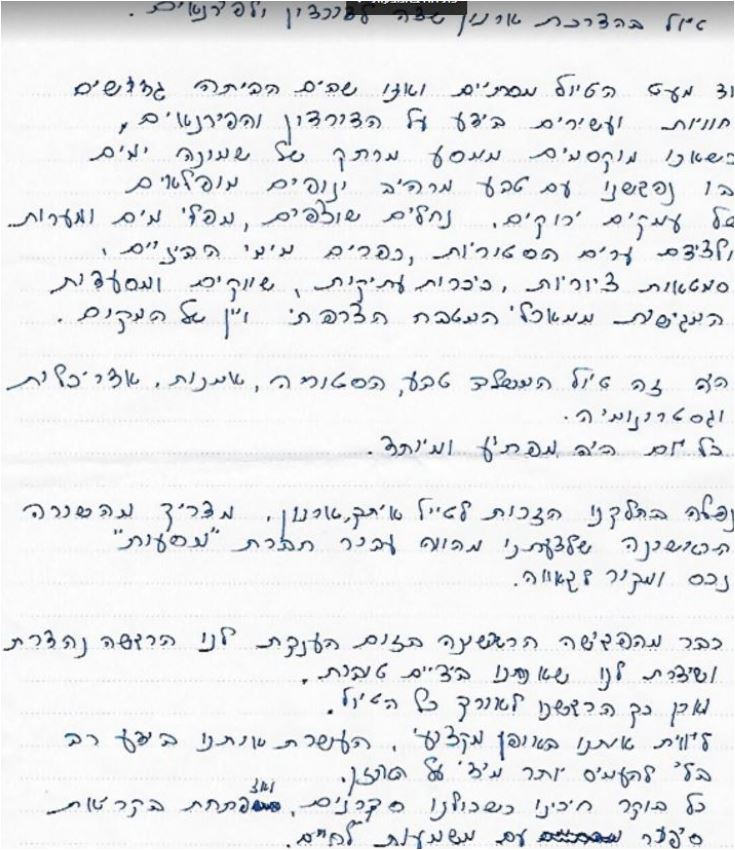 טיול בהדרכת ארנון שדה לדורדון ולפירנאים.
עוד מעט הטיול מסתיים ואנו שבים הביתה גדושים
חוויות ועשירים בידע על הדורדון והפירנאים,
כשאנו מוקסמים ממסע מרתק של שמונה ימים
בו נפגשנו עם טבע מרהיב ונופים מופלאים
של עמקים ירוקים, נחלים שוצפים, מפלי מים ומערות
ולצידם ערים הסטוריות, כפרים מימי הביניים,
סמטאות ציוריות, כיכרות עתיקות, שווקים ומסעדות
המגישות ממאכלי המטבח הצרפתי ויין של המקום.
היה זה טיול המשלב טבע, הסטוריה, אמנות, אדריכלות
וגסטרונומיה.
כל יום היה מפתיע ומיוחד.
נפלה בחלקנו הזכות לטייל איתך, ארנון, מדריך מהשורה
הראשונה שלדעתנו מהווה עבור חברת "מסעות"
נכס ומקור לגאווה.
כבר מהפגישה הראשונה בזום הענקת לנו הרגשה נהדרת
ושידרת לנו שאנחנו בידיים טובות.
ואכן כך הרגשנו לאורך כל הטיול.
ליווית אותנו באופן מקצועי, העשרת אותנו בידע רב
בלי להעמיס יותר מידי על האוזן.
כל בוקר חיכינו כשכולנו סקרנים, ואז פתחת בקריאת
סיפור עם משמעות לחיים.